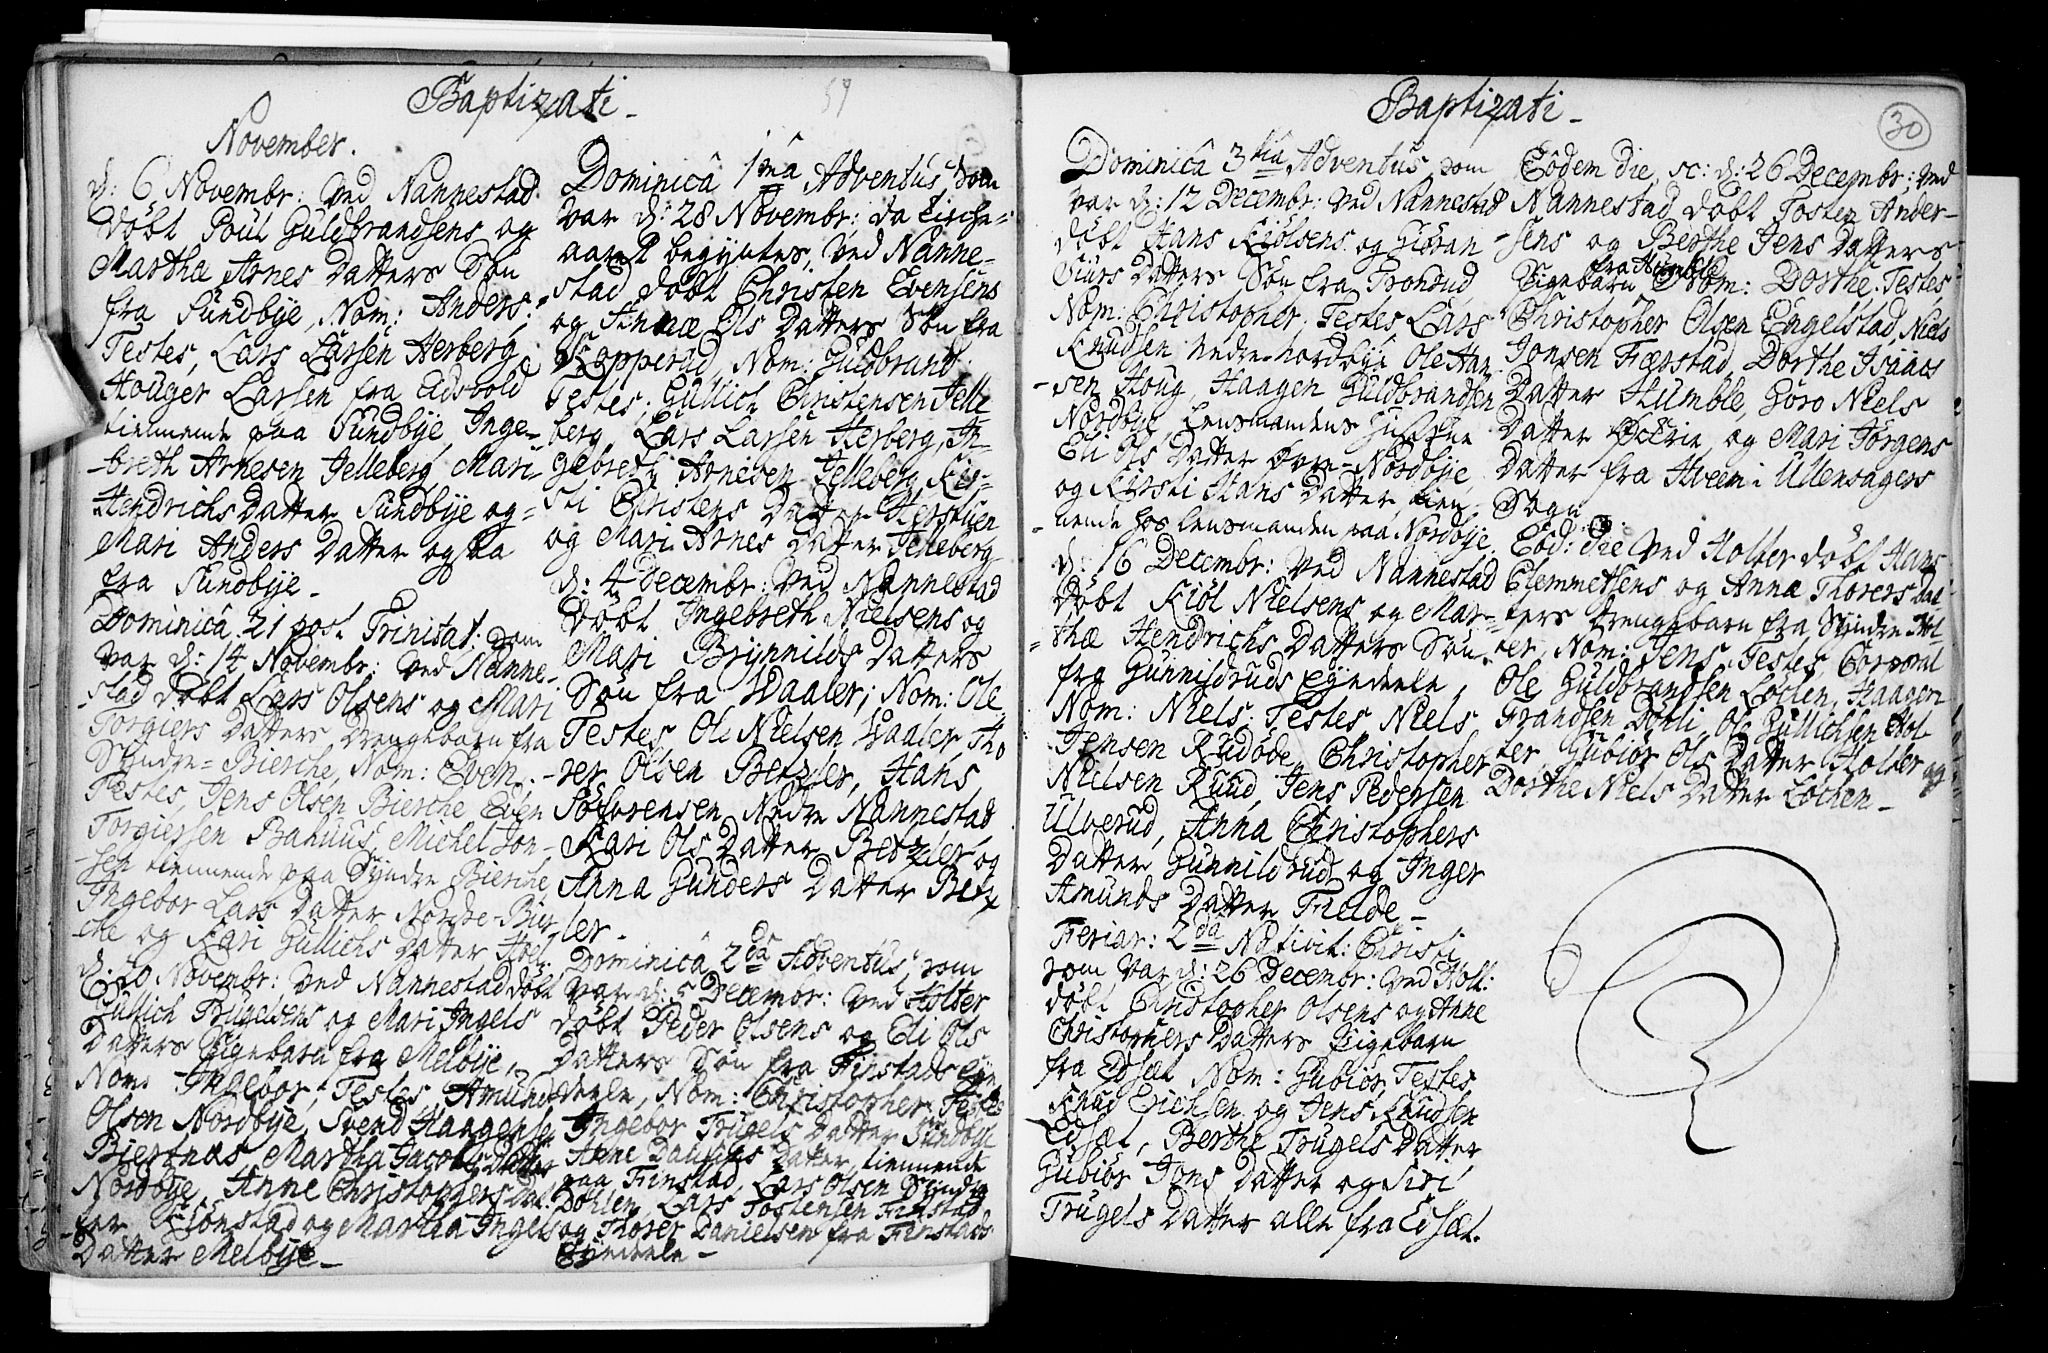 Baptizati
59
November.
d: 6 Novembr: Ved Nannestad
döbt Poul Guldbrandsens og
Martha Arnes Datters Sön
fra Sundbÿe, Nom: Anders.
Testes, Lars Larsen Herberg,
Houger Larsen fra Eidsvold
tiennende paa Sundbÿe, Inge-
breth Arnesen Jelleberg, Mari
Hendrichs Datter Sundbÿe og
Mari Anders Datter ogsaa
fra Sundbÿe.
Dominicâ 21 post Trinitat: som
var d: 14 Novembr: Ved Nanne-
stad döbt Lars Olsens og Mari
Torgiers Datters Drengebarn fra
Sÿndre-Bierche, Nom: Even.
Testes, Jens Olsen Bierche Even
Torgiersen Bahuus, Michel Jon-
sen tiennende paa Sÿndre Bierche
Ingebor Lars Datter Nordre-Bier-
che og Kari Gullichs Datter Hoel.
d: 20 Novembr: Ved Nannestad döbt
Gullich Trugelsens og Mari Ingels
Datters Pigebarn fra Melbÿe,
Nom: Ingebor, Testes, Amund
Olsen Nordbÿe, Svend Haagensen
Biertnæs Martha Jacobs Datter
Nordbÿe, Anne Christophers Dat-
ter Kiönstad og Martha Ingels
Datter Melbÿe.
Dominicâ 1mâ Adventus, som
var d: 28 Novembr: da Kirche-
aaret begÿntes, Ved Nanne-
stad döbt Christen Evensens
og Annæ Ols Datters Sön fra
Kopperud, Nom: Guldbrand.
Testes, Gullich Christensen Jelle
berg, Lars Larsen Herberg, In-
gebreth Arnesen Jelleberg, Kir-
sti Christens Datter
og Mari Arnes Datter Jelleberg
d: 4 Decembr: Ved Nannestad
döbt Ingebreth Nielsens og
Mari Brÿnnilds Datters
Sön fra Waaler, Nom: Ole
Testes Ole Nielsen Waaler, Tho
rer Olsen Berzler, Hans
Solvorensen Nedre Nannestad
Kari Ols Datter Berzler, og
Anna Gunders Datter Berz-
ler.
Dominicâ 2da Adventus, som
var d: 5 Decembr: Ved Holter
döbt Peder Olsens og Eli Ols
Datters Sön fra Finstads eÿe
deele, Nom: Christopher. Testes
Ingebor Trugels Datter Sundbÿe
Anne Daniels Datter, tiennende
paa Finstad, Lars Olsen Sundbÿe
Döhlen, Lars Tostensen Finstad
og Thorer Danielsen fra Finstads
Eÿedeele
Baptizati
30
Dominicâ 3tia Adventus, som
var d: 12 Decembr: Ved Nannestad
döbt Hans Kiölsens og Giöran
Siurs Datters Sön fra Tronrud
Nom: Christopher, Testes, Lars
Knudsen nedre-nordbÿe Ole Han
sen Houg, Haagen Guldbrandsen
Nordbÿe Lensmandens Hustrue
Eli Ols Datter övre-Nordbÿe
og Kirsti Hans Datter tien-
nende hos Lensmanden paa Nordbÿe.
d: 16 Decembr: Ved Nannestad
döbt Kiöl Nielsens og Mar-
thæ Hendrichs Datters Sön
fra Gunnildruds eÿedeele,
Nom: Niels. Testes Niels
Jensen Rudöde, Christopher
Nielsen Ruud, Jens Pedersen
Ulverud, Anna Christophers
Datter Gunnildrud og Inger
Amunds Datter Fielde.
Feriar: 2da Nativit: Christi
som var d: 26 Decembr: Ved Holt:
döbt Christopher Olsens og Anne
Christophers Datters Pigebarn
fra Edsæt Nom: Gubiör, Testes
Knud Erichsen og Jens Knudsen
Edsæt, Berthe Trugels Datter
Gubiör Jens Datter og Siri
Trugels Datter alle fra Edsæt.
Eodem die, sc: d: 26 Decembr: Ved
Nannestad döbt Tosten Ander-
sens og Berthe Jens Datters
Pigebarn fra Humble Nom: Dorthe. Testes,
Christopher Olsen Engelstad, Niels
Jonsen Færstad, Dorthe Isaacs
Datter Humble, Goro Niels
Datter Öcrie, og Mari Jörgens
Datter fra Hveem i Ullensagers
Sogn.
Eod: die Ved Holter döbt Hans
Clemmetsens og Anna Thorers Dat
ters Drengebarn fra Sÿndre Hol
ter, Nom: Jens. Testes, Corporal
Ole Guldbrandsen Löchen, Haagen
Frandsen Döbli, Ole Gullichsen Hol-
ter, Gubiör Ols Datter Holter og
Dorthe Niels Datter Löchen